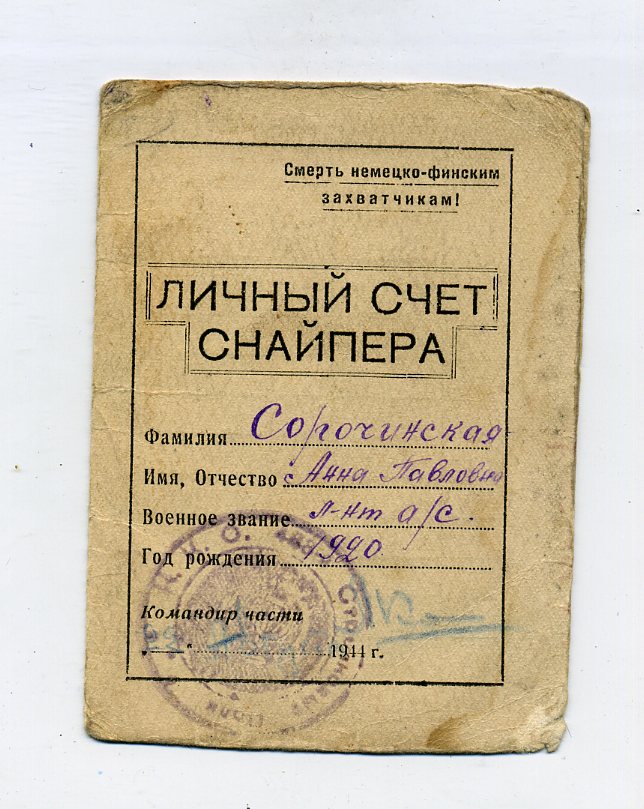 Смерть немецко-финским
захватчикам!
ЛИЧНЫЙ СЧЕТ
СНАЙПЕРА
Фамилия Сорочинская
Имя, Отчество Анна Павловна
Военное звание л-нт а/с.
Год рождения 1920
Командир части
1944 г.